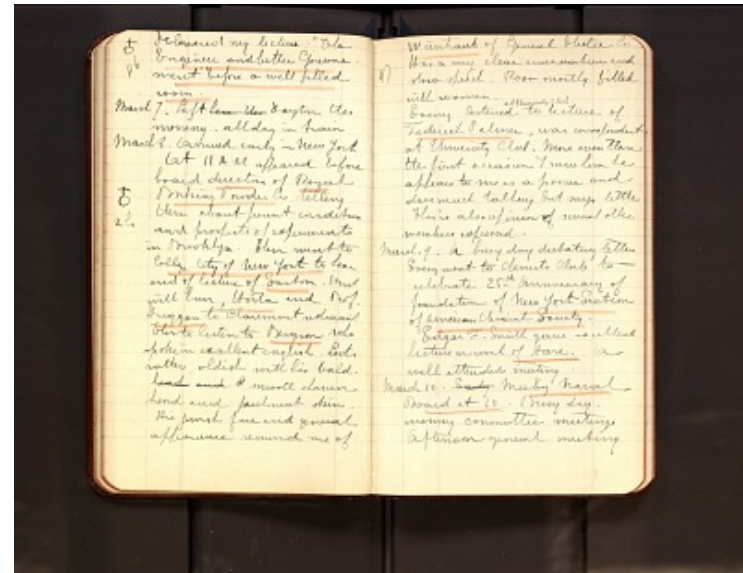 delivered my lecture "The
Engineer and better Governe-
ment" before a well filled
room.
March 7. Left Dayton this
morning. all day in train
March 8. Arrived early in New York
At 11 AM appeared before
board directors of Royal
Baking Powder Co telling
them about present condition
and prospects of experiments
in Brooklyn. Then went to
College City of New York to hear
end of lecture of Went
with him, and Prof.
to Claremont
to listen to Bergson who
spoke in excellent english. Looks
rather oldish with his bald
head and smooth shaven
and parchment skin.
His face and general
appearance remind me of
87
of General Electric Co
Has a very clear enunciation and
slow speech. Room mostly filled
with women.
Evening listened to lecture of
Frederick Palmer, war correspondent
at University Club. More even than
the first occasion I saw him he
appears to me as a poseur and
does much talking but says little
This is also opinion of several other
members
March 9. A busy day dictating letters
Evening went to Chemists Club to
celebrate 25th Anniversary of
foundation of New York Section
of American Chemical Society.
Edgar F. Smith gave excellent
lecture on work of Hare. A
well attended meeting.
March 10. Meeting Naval
Board at 10. Busy day.
morning committee meetings
Afternoon general meeting